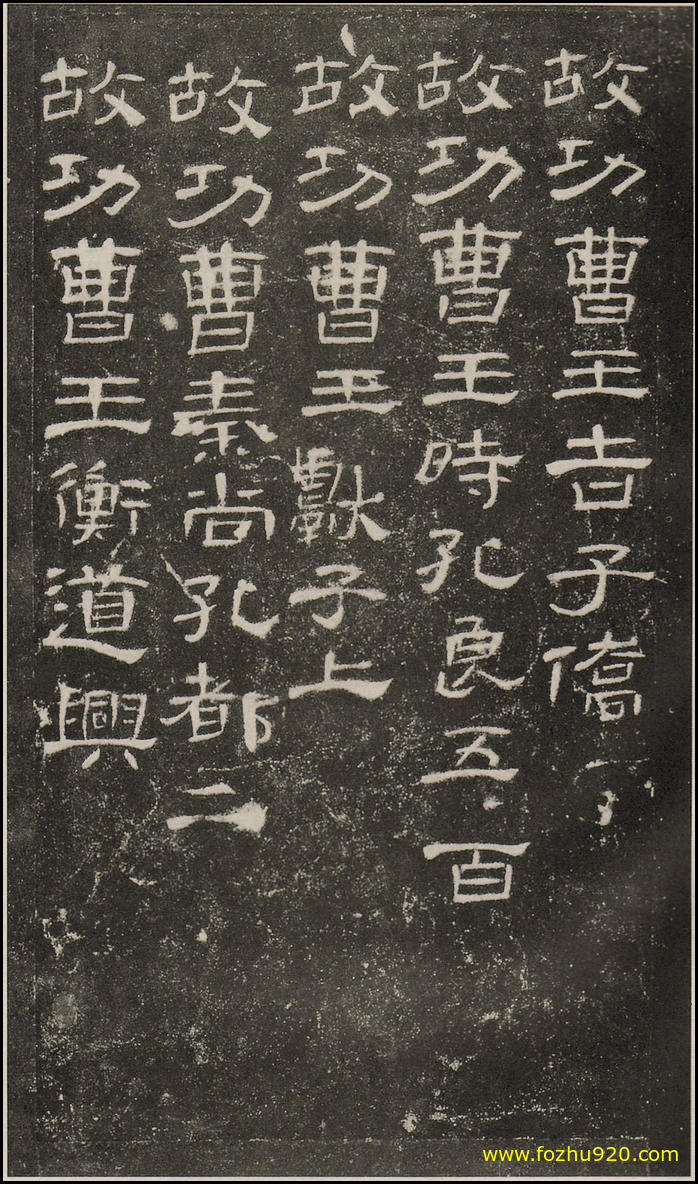 故功曹王吉子僑
故功曹王時孔良五百
故功曹王獻子上
故功曹秦尚孔都二
故功曹王衡道興
www.fozhu920.com